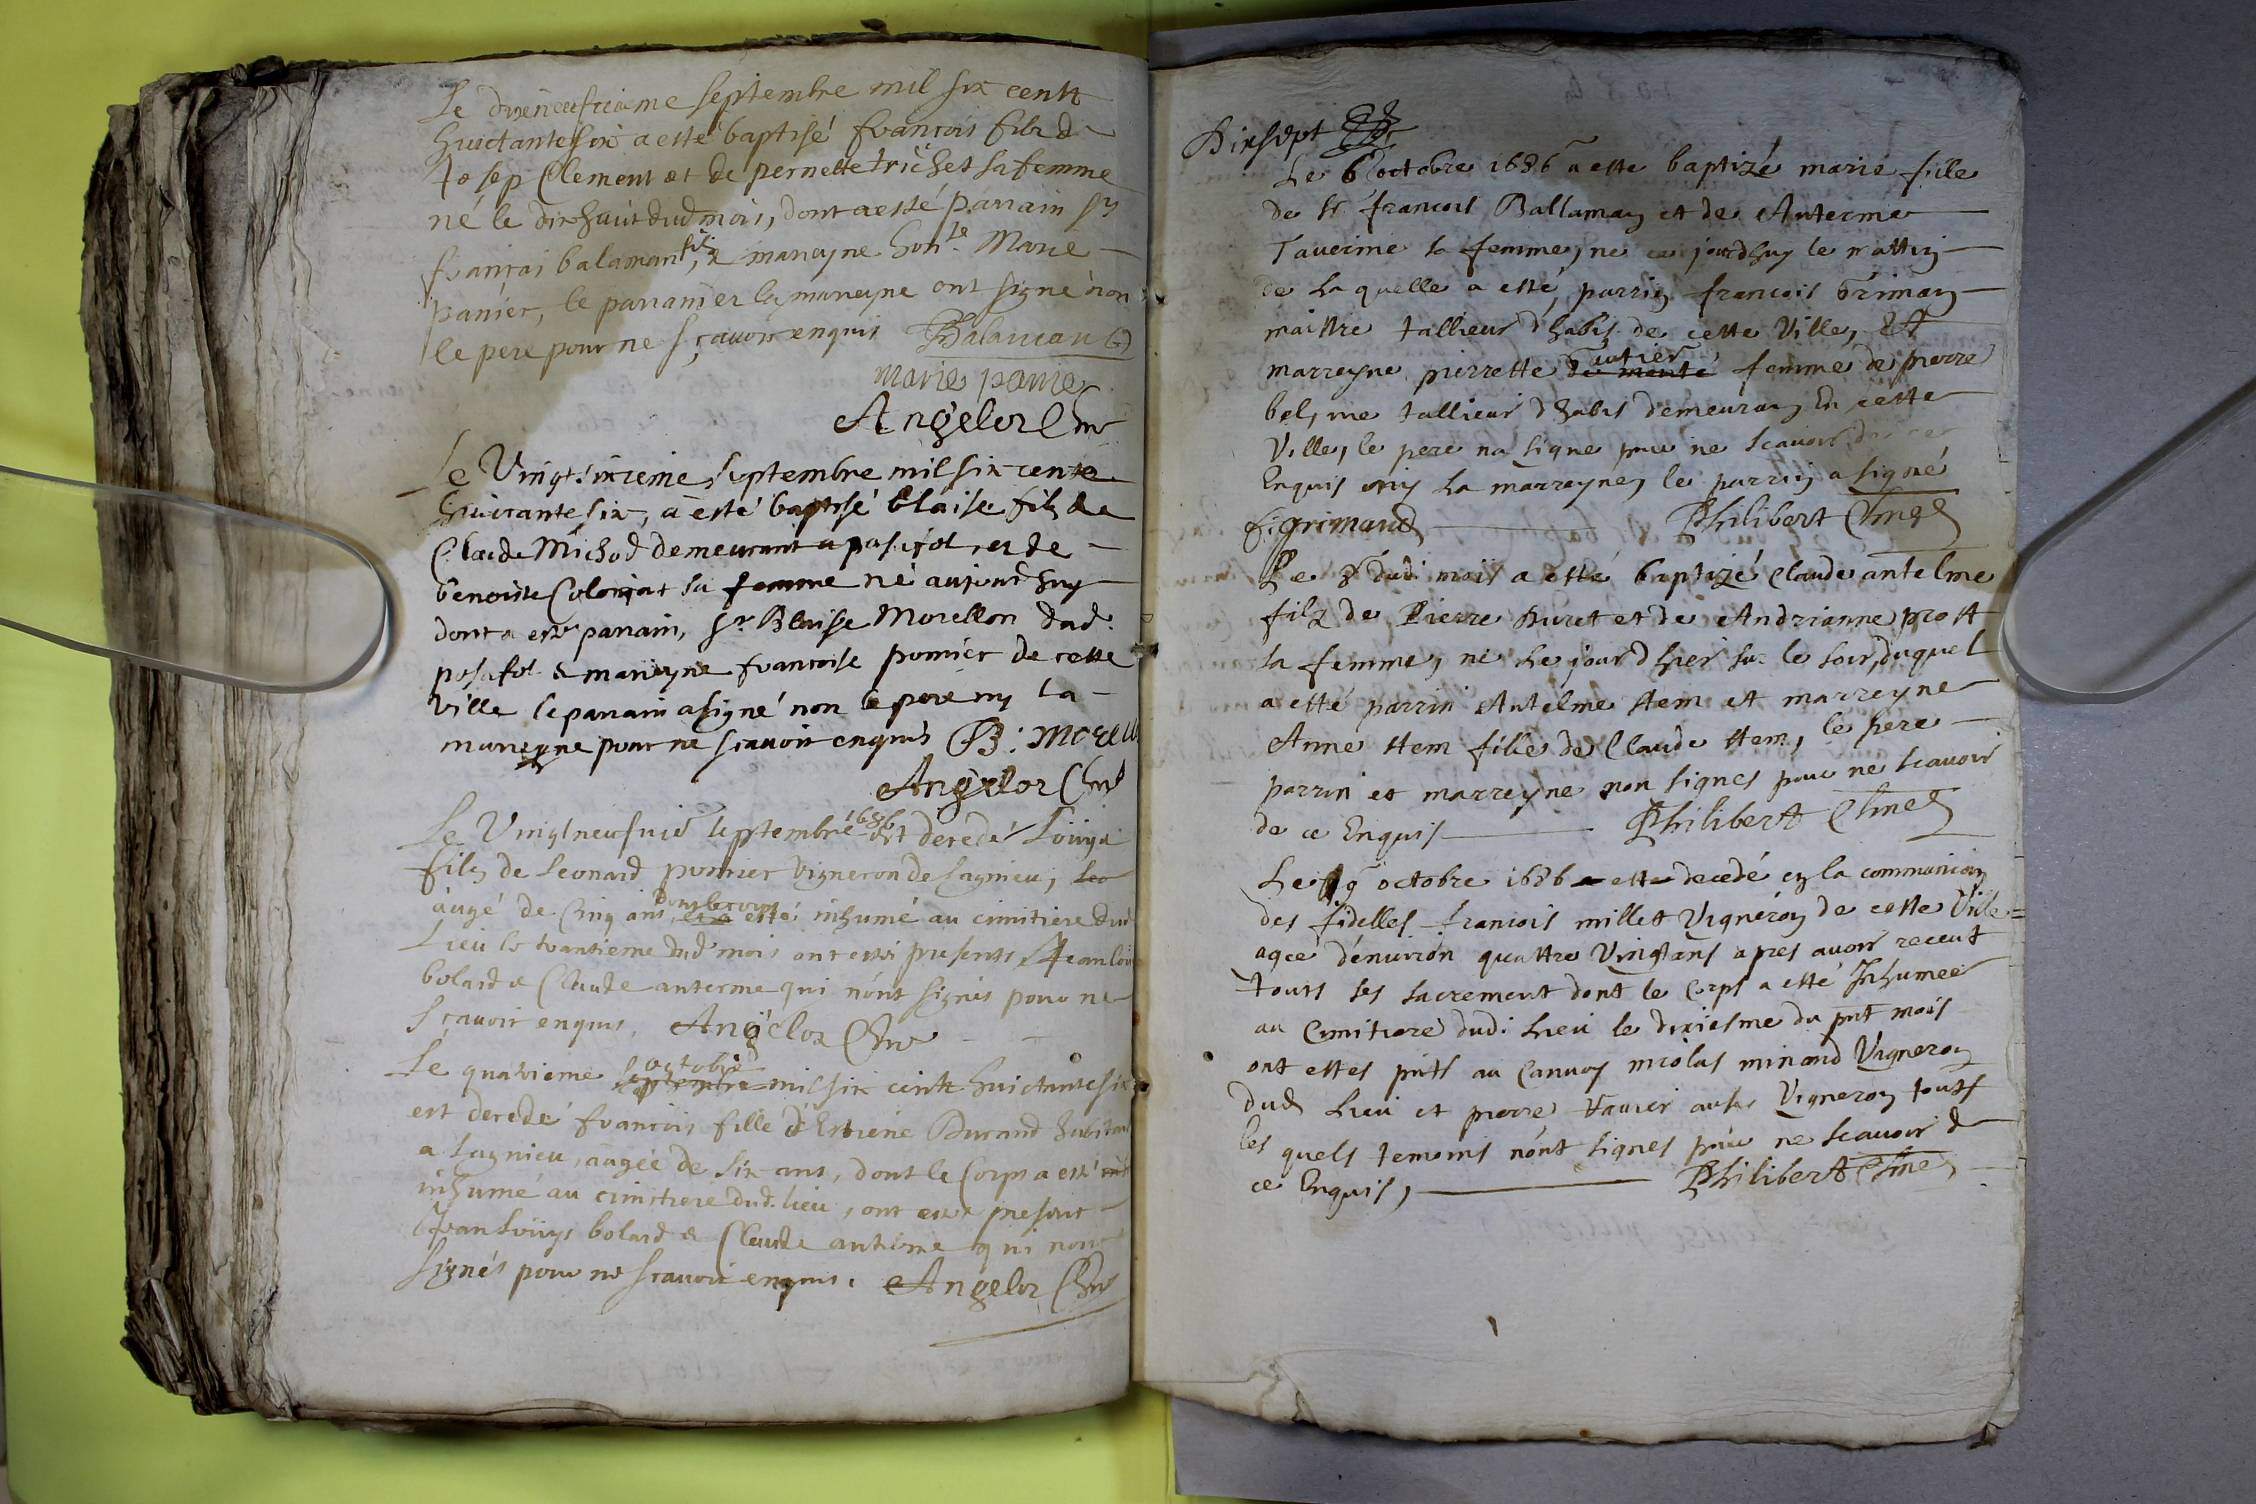 Le dixneufvieme septembre mil six centt
huictantesix a esté baptisé francois filz de
Josep Clement et de pernette trichet sa femme
né le dixhuit dud mois, dont a esté parrain sr
françois balaman fils, & mareyne honle Marie
panier, le parrain et la mareyne ont signé non
le pere pour ne sçavoir enquis Balaman
marie panie
Angelot Chne
Le Vingt sixieme septembre mil six cents
huictante six, a esté baptisé blaise filz de
Claude Michod demeurant a posafol et de
benoiste Colonjat sa femme né aujourdhuy
dont a esté parrain, sr Blaise Morellon dud.
posafol & mareyne francoise pomier de cette
ville le parrain a signé non le pere ny la
mareyne pour ne scavoir enquis B: Morell
Angelot Chne
Le Vingtneufvie septembre 1686 est decedé Loüys
filz de Leonard pomier Vigneron de Lagnieu,
aagé de Cinq ans, dont le corps a esté inhumé au cimitiere dud
Lieu le trantieme dud mois ont esté presents Jean loüis
bolard & Claude anterme qui n'ont signés pour ne
sçavoir enquis, Angelot Chne
Le quatrieme septembre octobre mil six centt huictantesix
est decedé francois fille d'Estiene Durand habitant
a Lagnieu, aagée de six ans, dont le Corps a esté
inhumé au cimitiere dud. lieu, ont esté present
Jean Loüys bolard & Claude anterme qui nont
signés pour ne scavoir enquis. Angelot Chne
Dixsept
Le 6 octobre 1686 a esté baptizé marie fille
de Sr francois Ballaman et de Anterme
Tavernie sa femme, ne ce jourdhuy le mattin
de la quelle a esté parrin francois Grimau
maittre tallieur d'habis de cette Ville, Et
marreyne pierrette de mente Gautier femme de pierre
bel, me tallieur d'habis demeuran En cette
Ville, le pere na signe pour ne scavoir de ce
Enquis ny La marreyne, le parrin a signé
f. grimaud Philibert Chne
Le 8 dudi mois a esté baptizé Claude antelme
filz de Pierre Duret et de Andrianne prost
sa femme, né le jour dhier sur le soir, duquel
a etté parrin Antelme Hem et marreyne
Anne Hem fille de Claude Hem, le pere
parrin et marreyne non signes pour ne scavoir
de ce Enquis Philibert Chne
Le 9 octobre 1686 a esté decedé en la communion
des fidelles francois millet Vigneron de cette Ville
agée d'enuiron quattre Vingt ans apres avoir receut
touts ses sacrement dont le Corps a etté Inhumée
au Cimitiere dudi Lieu le dixiesme du pnt mois
ont ettes pnts au Canvoy nicolas minand Vigneron
dud Lieu et pierre Tavier aussi Vigneron touts
les quels temoins n'ont signes pour ne scavoir de
ce Enquis, Philibert Chne